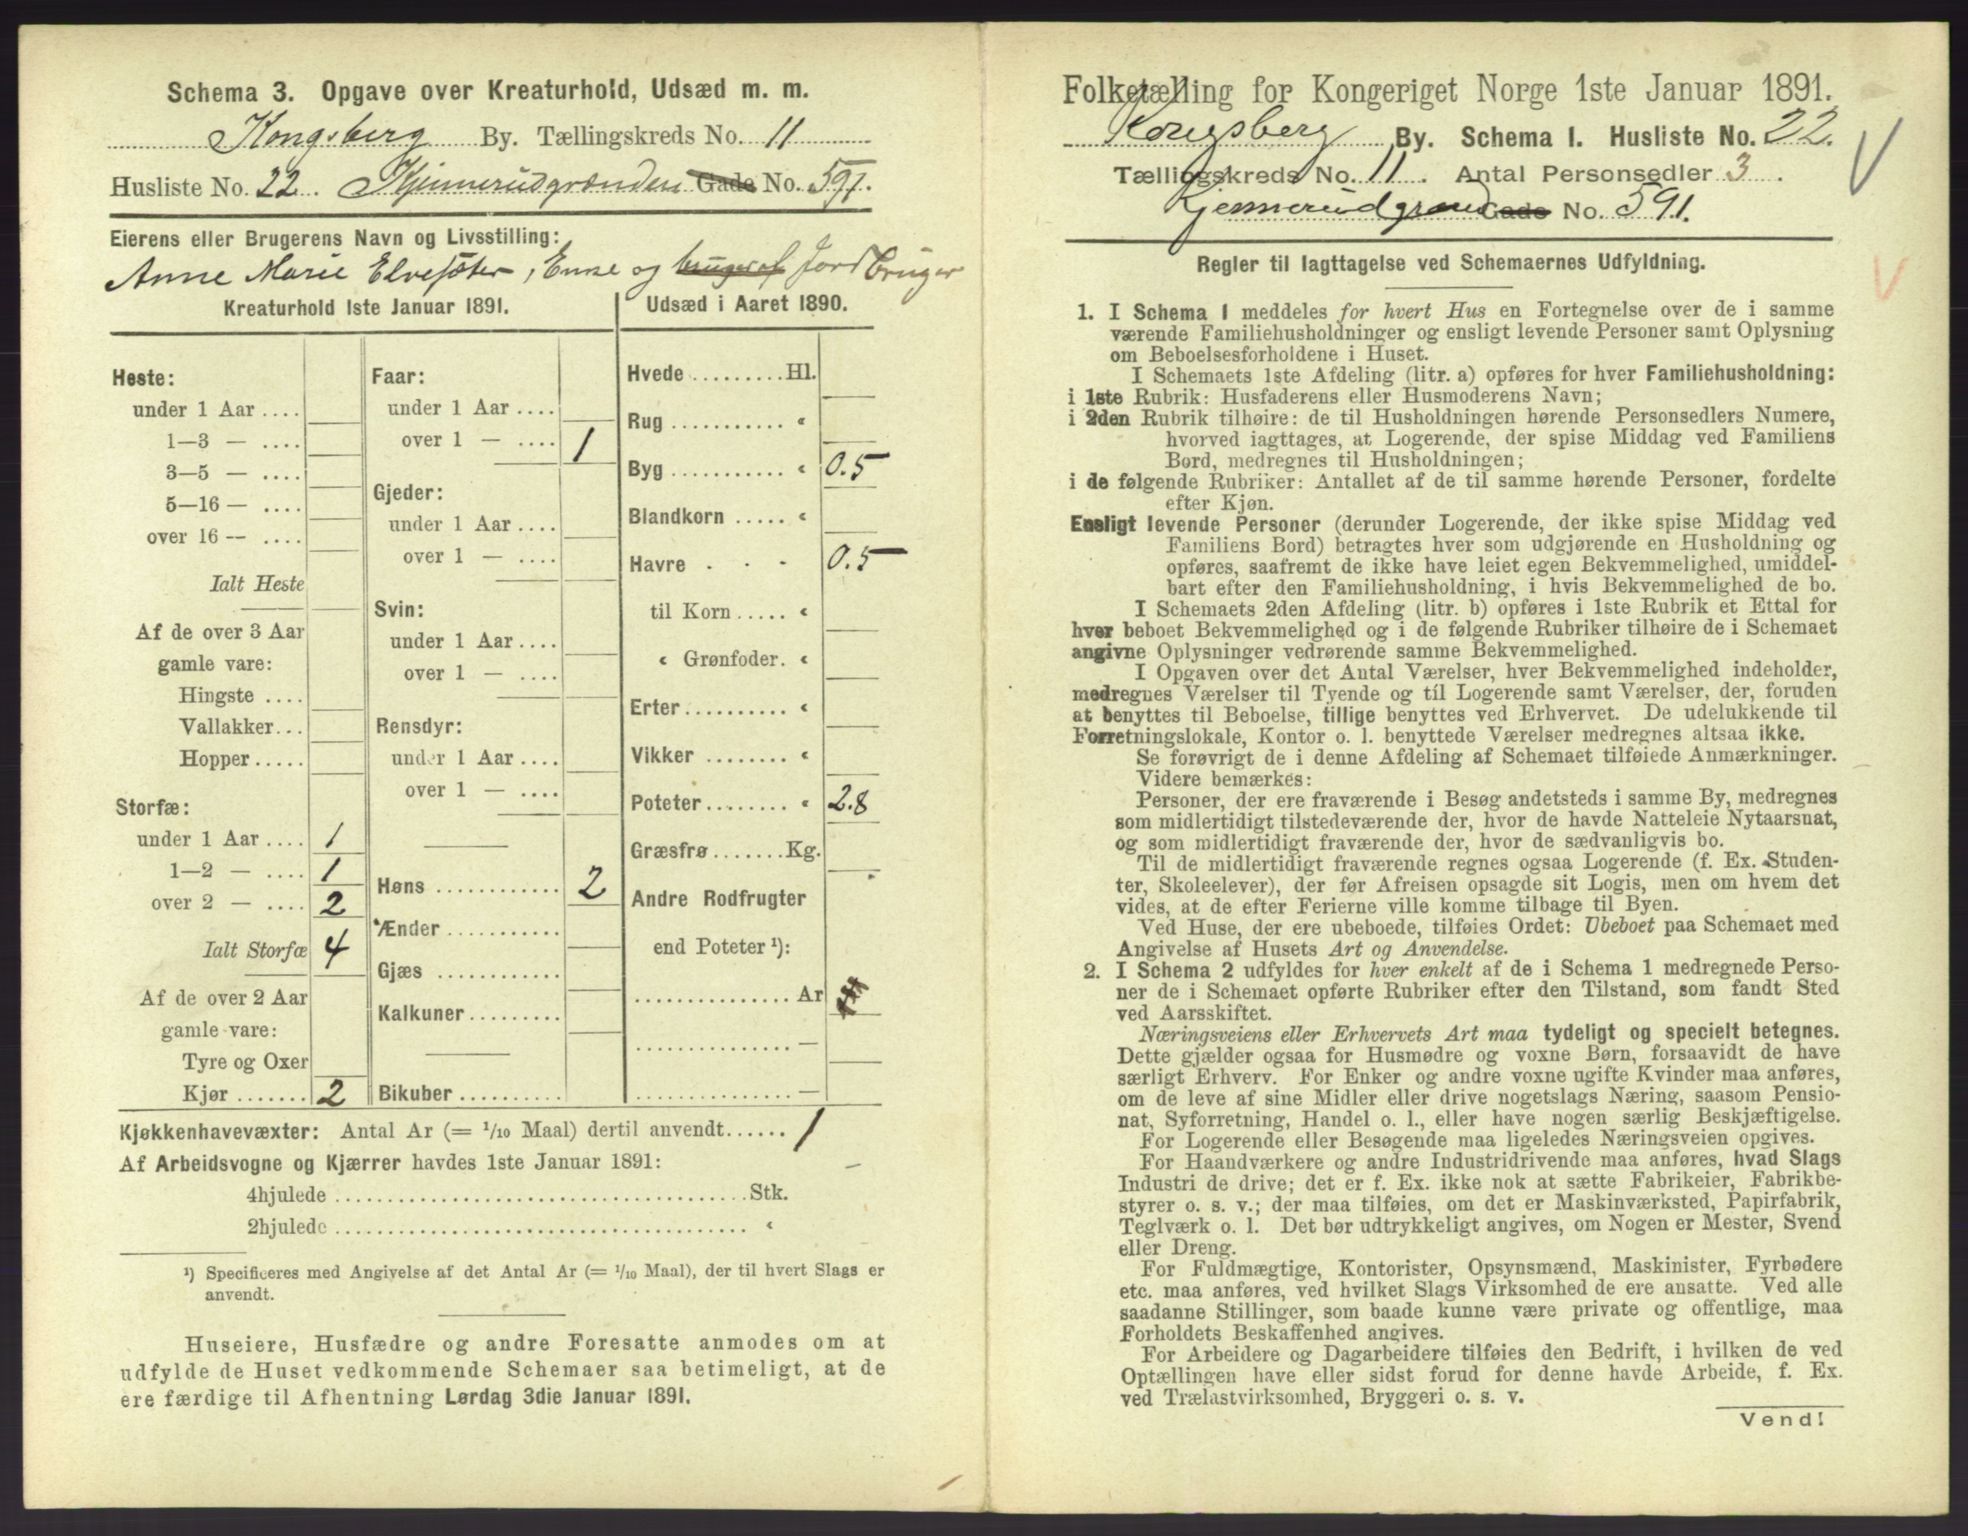 Schema 3. Opgave over Kreaturhold, Udsæd m. m.
Kongsberg By. Tællingskreds No. 11
Husliste No. 22. Kjennerudgrænden Gade No. 591.
Eierens eller Brugerens Navn og Livsstilling:
Anne Marie Elvesæter, Enke og bruger af Jordbruger
Kreaturhold 1ste Januar 1891.
Heste:
under 1 Aar ....
1—3 — ....
3—5 — ....
5—16 — ....
over 16 — ....
Ialt Heste
Af de over 3 Aar
gamle vare:
Hingste ....
Vallakker...
Hopper .....
Storfæ:
under 1 Aar .... 1
1—2 — .... 1
over 2 — .... 2
Ialt Storfæ 4
Af de over 2 Aar
gamle vare:
Tyre og Oxer
Kjør ....... 2
Faar:
under 1 Aar ....
over 1 — .... 1
Gjeder:
under 1 Aar ....
over 1 — ....
Svin:
under 1 Aar ....
over 1 — ....
Rensdyr:
under 1 Aar ....
over 1 — ....
Høns ............ 2
Ænder ...........
Gjæs ............
Kalkuner .........
Bikuber ..........
Udsæd i Aaret 1890.
Hvede .........Hl.
Rug ........... «
Byg ........... « 0.5
Blandkorn ..... «
Havre . - - 0.5
til Korn ..... «
« Grønfoder. «
Erter.......... «
Vikker ........ «
Poteter........ « 2.8
Græsfrø .......Kg.
Andre Rodfrugter
end Poteter ¹):
............... Ar
............... —
............... —
Kjøkkenhavevæxter: Antal Ar (= 1/10 Maal) dertil anvendt...... 1
Af Arbeidsvogne og Kjærrer havdes 1ste Januar 1891: —
4hjulede ........................................Stk.
2hjulede ........................................ «
¹) Specificeres med Angivelse af det Antal Ar (= 1/10 Maal), der til hvert Slags er
anvendt.
Huseiere, Husfædre og andre Foresatte anmodes om at
udfylde de Huset vedkommende Schemaer saa betimeligt, at de
ere færdige til Afhentning Lørdag 3die Januar 1891.
Folketælling for Kongeriget Norge 1ste Januar 1891.
Kongsberg By. Schema I. Husliste No. 22.
Tællingskreds No. 11. Antal Personsedler 3.
Kjennerudgrænd Gade No. 591.
Regler til Iagttagelse ved Schemaernes Udfyldning.
1. I Schema 1 meddeles for hvert Hus en Fortegnelse over de i samme
værende Familiehusholdninger og ensligt levende Personer samt Oplysning
om Beboelsesforholdene i Huset.
I Schemaets 1ste Afdeling (litr. a) opføres for hver Familiehusholdning:
i 1ste Rubrik: Husfaderens eller Husmoderens Navn;
i 2den Rubrik tilhøire: de til Husholdningen hørende Personsedlers Numere,
hvorved iagttages, at Logerende, der spise Middag ved Familiens
Bord, medregnes til Husholdningen;
i de følgende Rubriker: Antallet af de til samme hørende Personer, fordelte
efter Kjøn.
Ensligt levende Personer (derunder Logerende, der ikke spise Middag ved
Familiens Bord) betragtes hver som udgjørende en Husholdning og
opføres, saafremt de ikke have leiet egen Bekvemmelighed, umiddel-
bart efter den Familiehusholdning, i hvis Bekvemmelighed de bo.
I Schemaets 2den Afdeling (litr. b) opføres i 1ste Rubrik et Ettal for
hver beboet Bekvemmelighed og i de følgende Rubriker tilhøire de i Schemaet
angivne Oplysninger vedrørende samme Bekvemmelighed.
I Opgaven over det Antal Værelser, hver Bekvemmelighed indeholder,
medregnes Værelser til Tyende og til Logerende samt Værelser, der, foruden
at benyttes til Beboelse, tillige benyttes ved Erhvervet. De udelukkende til
Forretningslokale, Kontor o. l. benyttede Værelser medregnes altsaa ikke.
Se forøvrigt de i denne Afdeling af Schemaet tilføiede Anmærkninger.
Videre bemærkes:
Personer, der ere fraværende i Besøg andetsteds i samme By, medregnes
som midlertidigt tilstedeværende der, hvor de havde Natteleie Nytaarsnat,
og som midlertidigt fraværende der, hvor de sædvanligvis bo.
Til de midlertidigt fraværende regnes ogsaa Logerende (f. Ex. Studen-
ter, Skoleelever), der før Afreisen opsagde sit Logis, men om hvem det
vides, at de efter Ferierne ville komme tilbage til Byen.
Ved Huse, der ere ubeboede, tilføies Ordet: Ubeboet paa Schemaet med
Angivelse af Husets Art og Anvendelse.
2. I Schema 2 udfyldes for hver enkelt af de i Schema 1 medregnede Perso-
ner de i Schemaet opførte Rubriker efter den Tilstand, som fandt Sted
ved Aarsskiftet.
Næringsveiens eller Erhvervets Art maa tydeligt og specielt betegnes.
Dette gjælder ogsaa for Husmødre og voxne Børn, forsaavidt de have
særligt Erhverv. For Enker og andre voxne ugifte Kvinder maa anføres,
om de leve af sine Midler eller drive nogetslags Næring, saasom Pensio-
nat, Syforretning, Handel o. l., eller have nogen særlig Beskjæftigelse.
For Logerende eller Besøgende maa ligeledes Næringsveien opgives.
For Haandværkere og andre Industridrivende maa anføres, hvad Slags
Industri de drive; det er f. Ex. ikke nok at sætte Fabrikeier, Fabrikbe-
styrer o. s. v.; der maa tilføies, om det er Maskinværksted, Papirfabrik,
Teglværk o. l. Det bør udtrykkeligt angives, om Nogen er Mester, Svend
eller Dreng.
For Fuldmægtige, Kontorister, Opsynsmænd, Maskinister, Fyrbødere
etc. maa anføres, ved hvilket Slags Virksomhed de ere ansatte. Ved alle
saadanne Stillinger, som baade kunne være private og offentlige, maa
Forholdets Beskaffenhed angives.
For Arbeidere og Dagarbeidere tilføies den Bedrift, i hvilken de ved
Optællingen have eller sidst forud for denne havde Arbeide, f. Ex.
ved Trælastvirksomhed, Bryggeri o. s. v.
Vend!